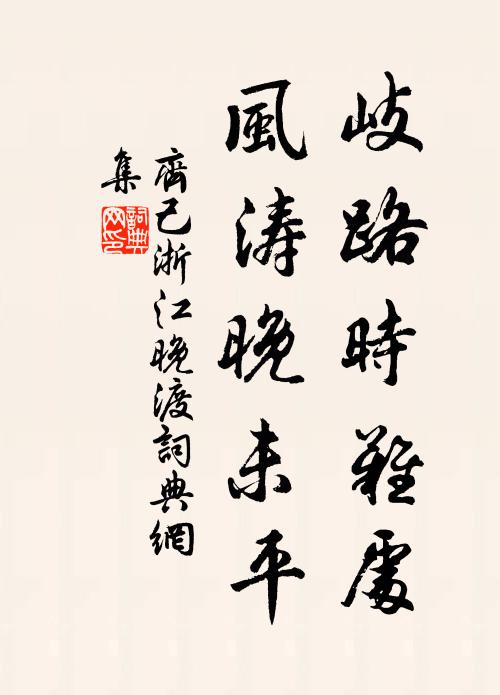 歧路時難處
風濤晚未平
齊己浙江晚渡詞典網
集
詞典網印